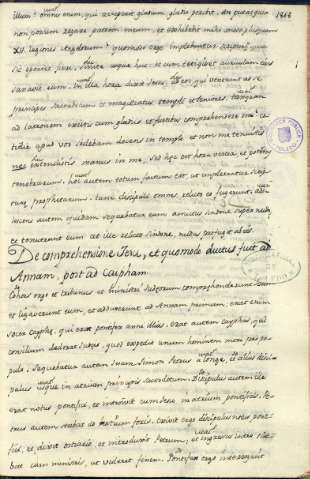 illum: omnis enim, qui acceperit gladium gladio peribit. An putas quia 1868
non possum rogare patrem meum, et exhibebit mihi modo plusquam
XII. legiones Angelorum? quomodo ergo implebuntur scripturæ quia
sic oportet fieri. sinite usque huc. et cum tetigisset auriculam ejus
sanavit eum. In illa hora dixit Jesus, his qui venerant ad se
principes sacerdotum et magistratus templi et seniores, tanquam
ad latronem existis cum gladiis et fustibus comprehendere me? co
tidie apud vos sedebam docens in templo et non me tenuistis
nec extendistis manus in me, sed hæc est hora vestra, et potestas
tenebrarum. hoc autem totum factum est, ut implerentur scriptu
ræ prophetarum. tunc discipuli omnes relicto eo fugerunt. ado
lescens autem quidam sequebatur eum amictus sindone super nudo,
et tenuerunt eum at ille relicta sindone, nudus profugit ab eis.
De comprehensione Jesu, et quomodo ductus fuit ad
Annam, post ad Caipham.
Cohors ergo et tribunus et ministri Judeorum comprehenderunt Jesum
et ligaverunt eum, et adduxerunt ad Annam primum, erat enim
socer cayphæ, qui erat pontifex anni illius. erat autem cayphas, qui
consilium dederat Judeis, quod expedit unum hominem mori pro po
pulo. sequebatur autem Jesum Simon Petrus a longe, et alius disci
pulus usque in atrium principis sacerdotum. Discipulus autem ille
erat notus pontifici, et introivit cum Jesu in atrium pontificis. Pe
trus autem stabat ad ostium foris. exivit ergo discipulus notus ponti
fici, et dixit ostiariæ, et introduxit Petrum, et ingressus intro sede
bat cum ministris, ut videret finem. Pontifex ergo interrogavit